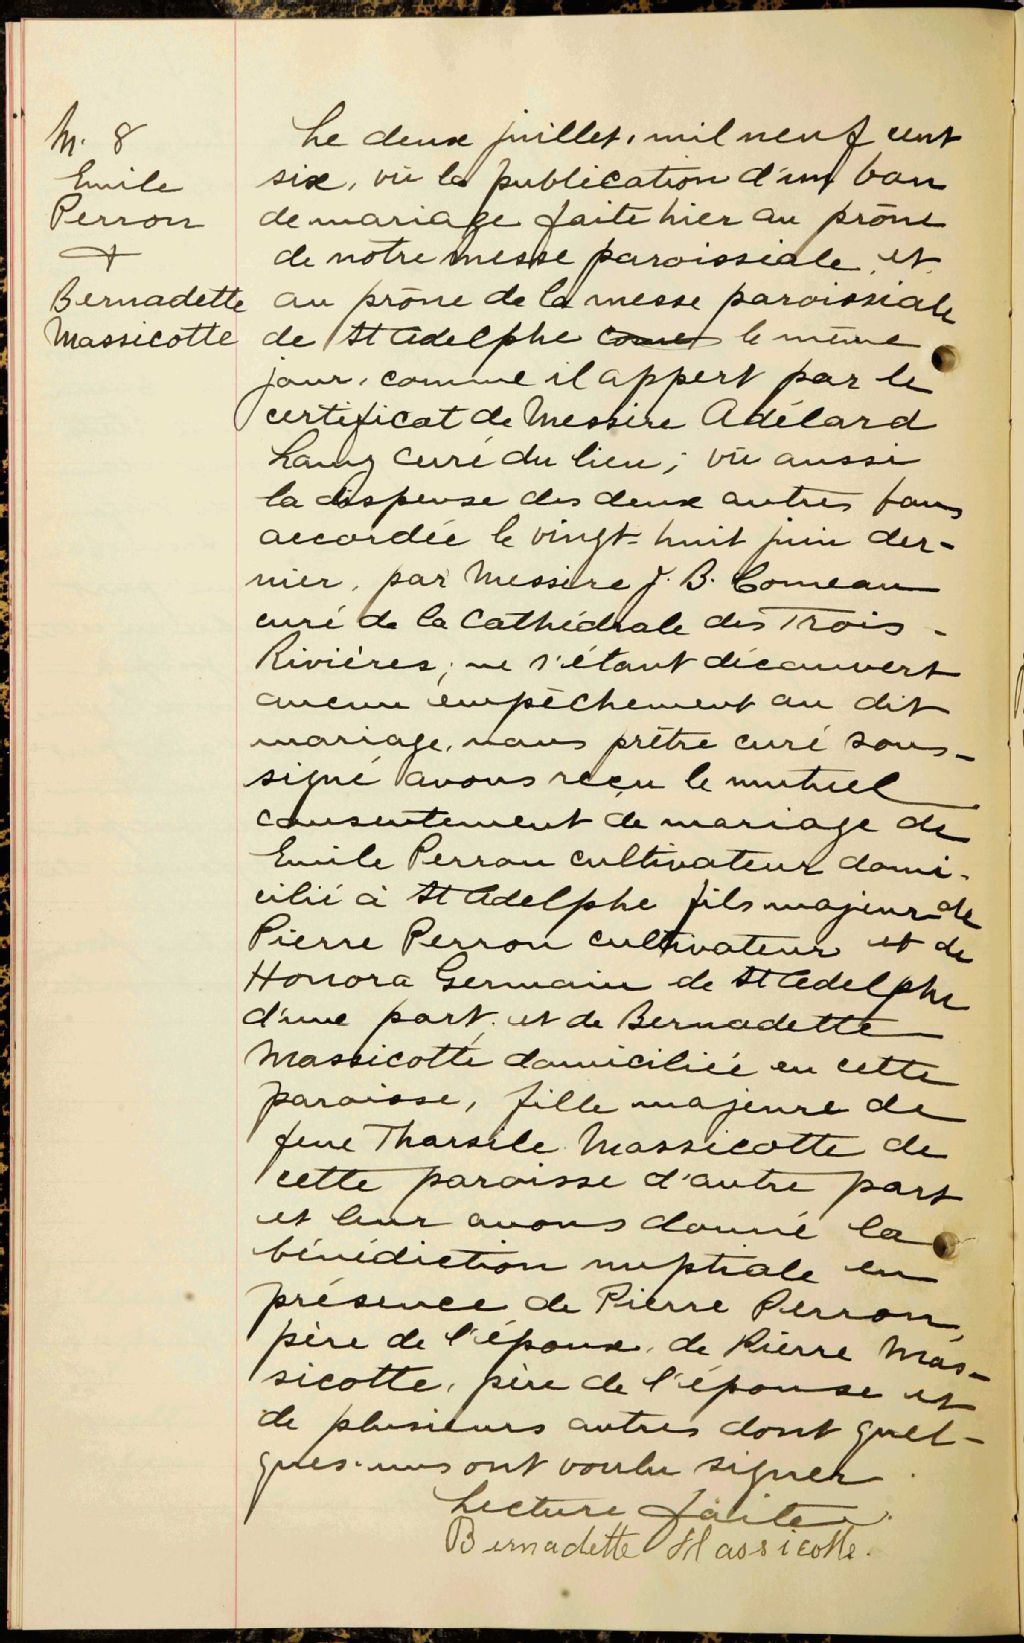 M. 8
Emile
Perron
+
Bernadette
Massicotte
Le deux juillet, mil neuf cent
six, vû la publication d'un ban
de mariage faite hier au prône
de notre messe paroissiale et
au prône de la messe paroissiale
de St Adelphe le même
jour, comme il appert par le
certificat de Messire Adélard
curé du lieu; vû aussi
la dispense des deux autres bans
accordée le vingt-huit juin der-
nier, par Messire J. B. Comeau
curé de la Cathédrale des Trois-
Rivières; ne s'étant découvert
aucun empêchement au dit
mariage, nous prêtre curé sous-
signé avons reçu le mutuel
consentement de mariage de
Emile Perron cultivateur domi-
cilié à St Adelphe fils majeur de
Pierre Perron cultivateur et de
Honora Germain de St Adelphe
d'une part; et de Bernadette
Massicotte domiciliée en cette
paroisse, fille majeure de
feue Tharsile Massicotte de
cette paroisse d'autre part
et leur avons donné la
bénédiction nuptiale en
présence de Pierre Perron,
père de l'époux, de Pierre Mas-
sicotte, père de l'épouse et
de plusieurs autres dont quel-
ques-uns ont voulu signer.
Lecture faite.
Bernadette Massicotte.